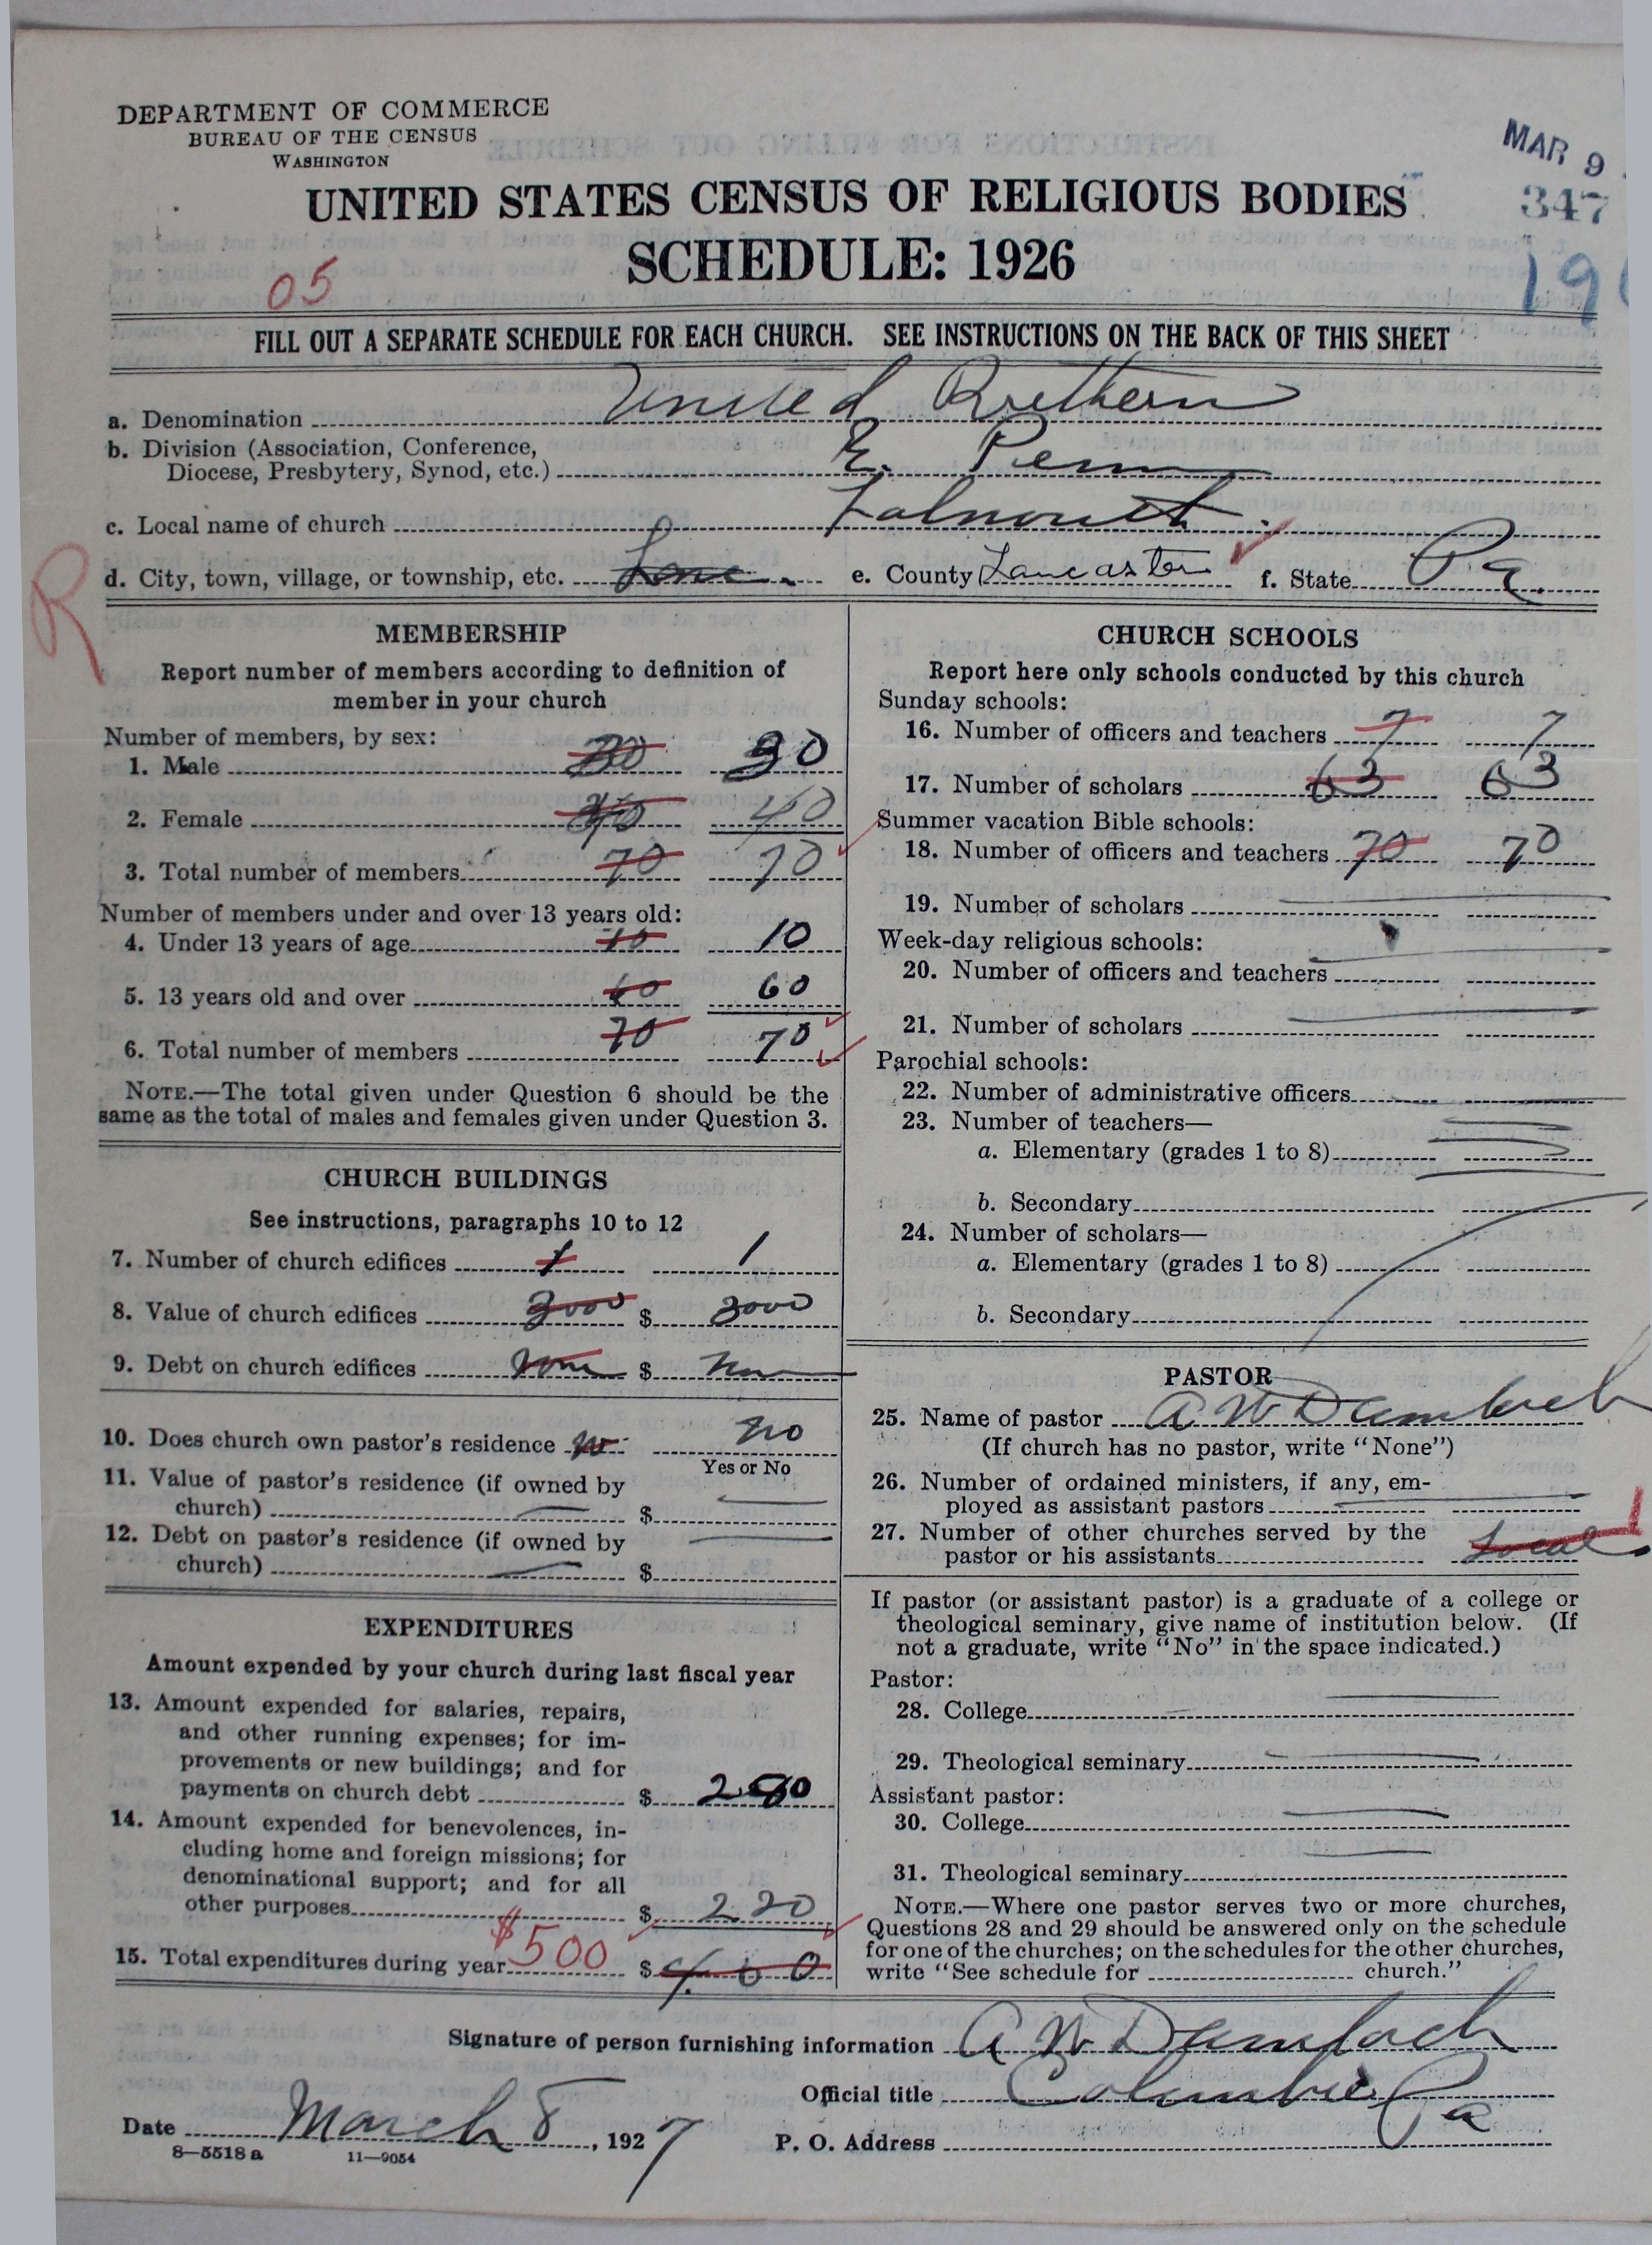 DEPARTMENT OF COMMERCE
BUREAU OF THE CENSUS
WASHINGTON
MAR 9
347
UNITED STATES CENSUS OF RELIGIOUS BODIES
SCHEDULE: 1926
190
05
FILL OUT A SEPARATE SCHEDULE FOR EACH CHURCH. SEE INSTRUCTIONS ON THE BACK OF THIS SHEET
a. Denomination United Brethern
b. Division (Association, Conference,
Diocese, Presbytery, Synod, etc.) E. Penn
c. Local name of church Falmouth
d. City, town, village, or township, etc. e. County Lancaster f. State Pa.
R
MEMBERSHIP
Report number of members according to definition of
member in your church
Number of members, by sex:
1. Male 30 30
2. Female 40 40
3. Total number of members 70 70
Number of members under and over 13 years old:
4. Under 13 years of age 10 10
5. 13 years old and over 60 60
6. Total number of members 70 70
NOTE.—The total given under Question 6 should be the
same as the total of males and females given under Question 3.
CHURCH BUILDINGS
See instructions, paragraphs 10 to 12
7. Number of church edifices 1 1
8. Value of church edifices 3000 $ 3000
9. Debt on church edifices None $ None
10. Does church own pastor's residence No No
Yes or No
11. Value of pastor's residence (if owned by
church) $
12. Debt on pastor's residence (if owned by
church) $
EXPENDITURES
Amount expended by your church during last fiscal year
13. Amount expended for salaries, repairs,
and other running expenses; for im-
provements or new buildings; and for
payments on church debt $ 280
14. Amount expended for benevolences, in-
cluding home and foreign missions; for
denominational support; and for all
other purposes $ 220
15. Total expenditures during year $500 $ 400
CHURCH SCHOOLS
Report here only schools conducted by this church
Sunday schools:
16. Number of officers and teachers 7 7
17. Number of scholars 63 63
Summer vacation Bible schools:
18. Number of officers and teachers 70 70
19. Number of scholars
Week-day religious schools:
20. Number of officers and teachers
21. Number of scholars
Parochial schools:
22. Number of administrative officers
23. Number of teachers—
a. Elementary (grades 1 to 8)
b. Secondary
24. Number of scholars—
a. Elementary (grades 1 to 8)
b. Secondary
PASTOR
25. Name of pastor A W Dambach
(If church has no pastor, write "None")
26. Number of ordained ministers, if any, em-
ployed as assistant pastors
27. Number of other churches served by the
pastor or his assistants Local
If pastor (or assistant pastor) is a graduate of a college or
theological seminary, give name of institution below. (If
not a graduate, write "No" in the space indicated.)
Pastor:
28. College
29. Theological seminary
Assistant pastor:
30. College
31. Theological seminary
NOTE.—Where one pastor serves two or more churches,
Questions 28 and 29 should be answered only on the schedule
for one of the churches; on the schedules for the other churches,
write "See schedule for church."
Signature of person furnishing information A W Dambach
Official title Columbia Pa
Date March 8, 1927 P. O. Address
8—5518 a 11—9054